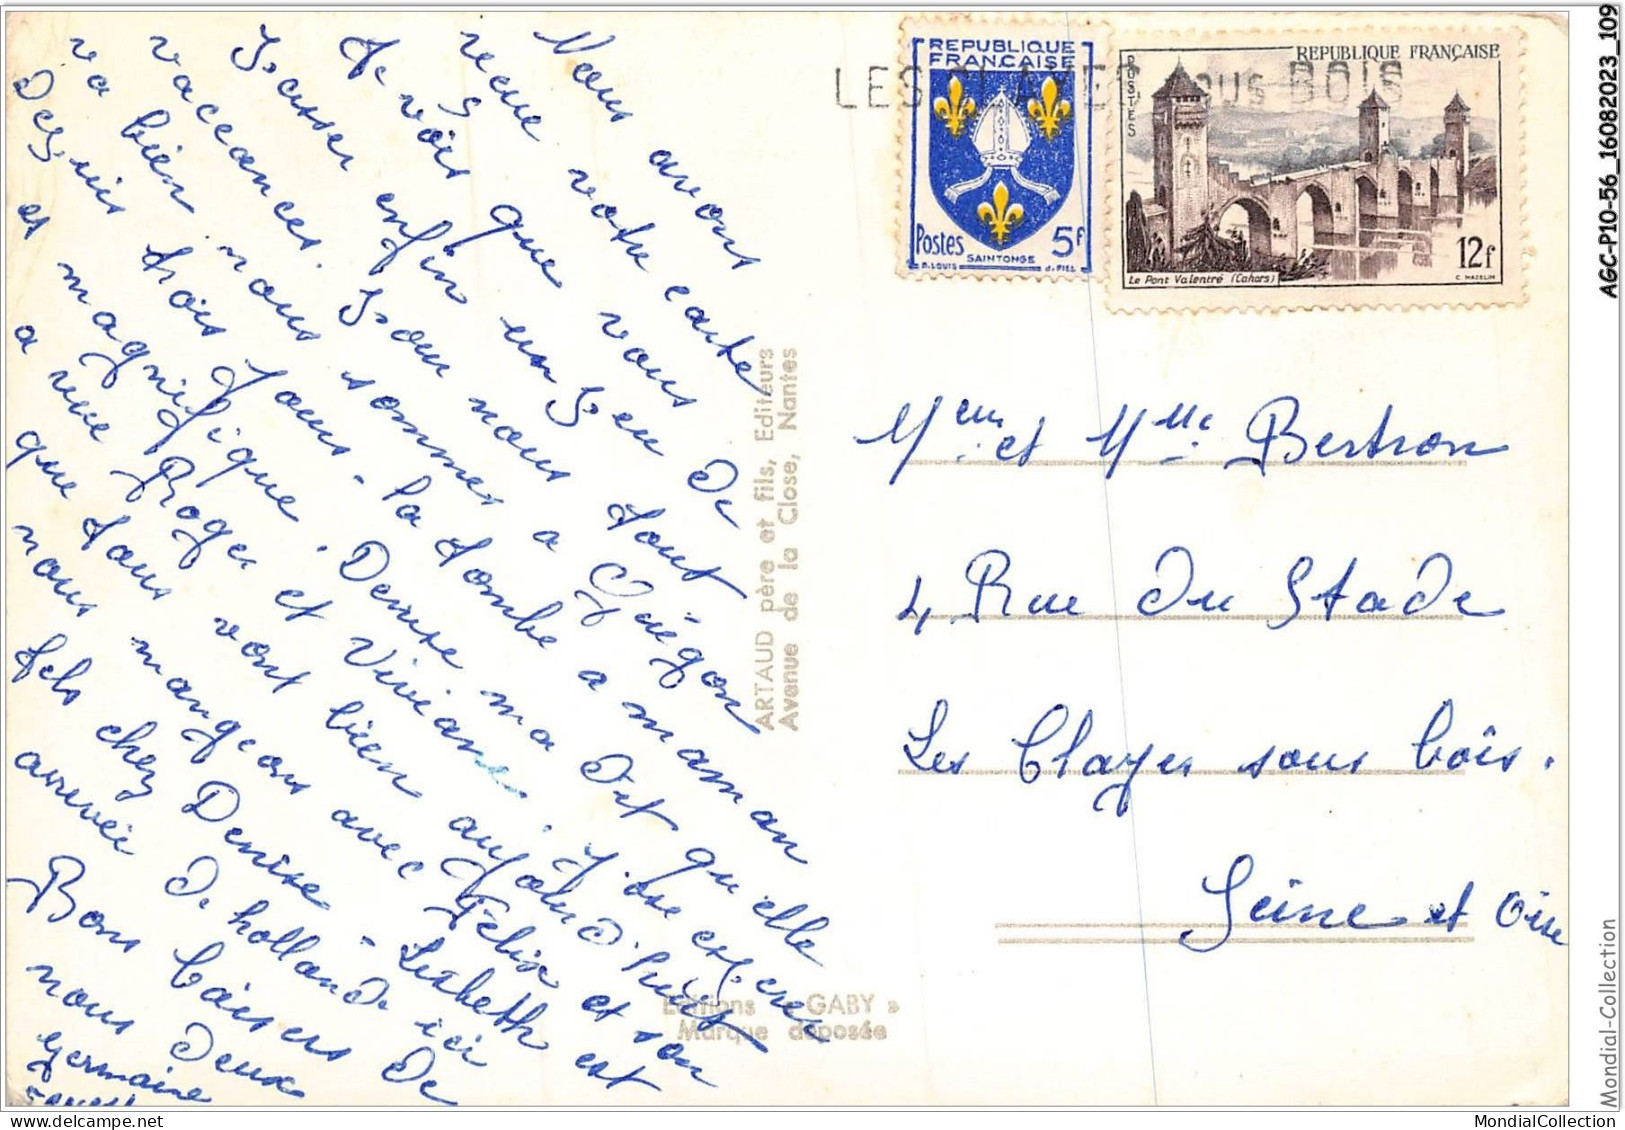 Nous avons
reçue votre carte
Je vois que vous
Passer enfin un peu de
vaccances. Pour nous tout
va bien nous sommes a Guégon
Depuis trois Jours - la tombe a maman
est magnifique. Denise ma dit qu'elle
a vue Roger et Viviane. J'ose espérer
que tous vont bien aujourd'huit
nous mangeons avec Félix et son
fils chez Denise - Lisbeth est
arrivée de hollande ici
Bons baisers de
nous deux
Germaine
REPUBLIQUE
FRANÇAISE
Postes 5f
SAINTONGE
R. LOUIS d. PIEL
LES CLAYES sous BOIS
REPUBLIQUE FRANÇAISE
POSTES
12f
Le Pont Valentré (Cahors)
C. MAZELIN
ARTAUD père et fils, Editeurs
Avenue de la Close, Nantes
Editions « GABY »
Marque déposée
Mem et Mlle Bertron
4 Rue du Stade
Les Clayes sous bois.
Seine et Oise
AGC-P10-56_16082023_109
Mondial-Collection
MondialCollection